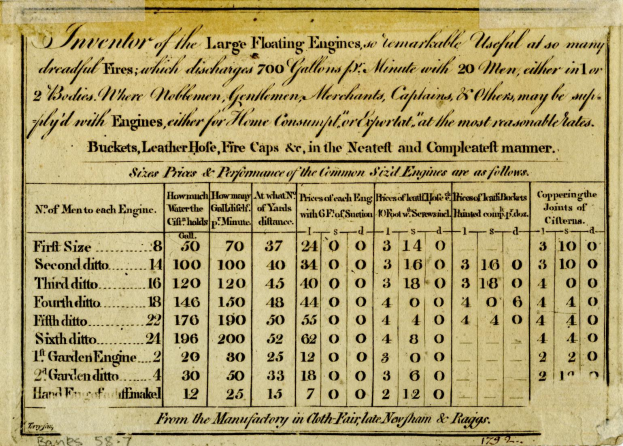 Inventor of the Large Floating Engines, so remarkable Useful at so many
dreadful Fires; which discharges 700 Gallons pr. Minute with 20 Men, either in 1 or
2 Bodies. Where Noblemen, Gentlemen, Merchants, Captains, & Others, may be sup-
ply'd with Engines, either for Home Consumpt.n or Exportat.n at the most reasonable rates.
Buckets, Leather Hose, Fire Caps &c, in the Neatest and Compleatest manner.
Sizes Prices & Performance of the Common Siz'd Engines are as follows.
No. of Men to each Engine. How much Water the Cist.n holds How many Gall.s disch. pr. Minute. At what No. of Yards distance. Prices of each Eng with 6 Ft. of Suction Prices of Leath.r Hose 40 Foot wt. Screws incl. Prices of Leath.r Buckets Painted comp. pr. doz. Coppering the Joints of Cisterns.
Gall. l s d l s d l s d l s d
First Size 8 50 70 37 24 0 0 3 14 0 3 10 0
Second ditto 14 100 100 40 34 0 0 3 16 0 3 16 0 3 10 0
Third ditto 16 120 120 45 40 0 0 3 18 0 3 18 0 4 0 0
Fourth ditto 18 146 150 48 44 0 0 4 0 0 4 0 6 4 4 0
Fifth ditto 22 176 190 50 55 0 0 4 4 0 4 4 0 4 4 0
Sixth ditto 24 196 200 52 62 0 0 4 8 0 4 4 0
1st Garden Engine 2 20 30 25 12 0 0 3 0 0 2 2 0
2d Garden ditto 4 30 50 33 18 0 0 3 6 0 2 0
Hand 12 25 15 7 0 0 2 12 0
From the Manufactory in Cloth-Fair, late Newsham & Raggs.
Banks 58-7 1792